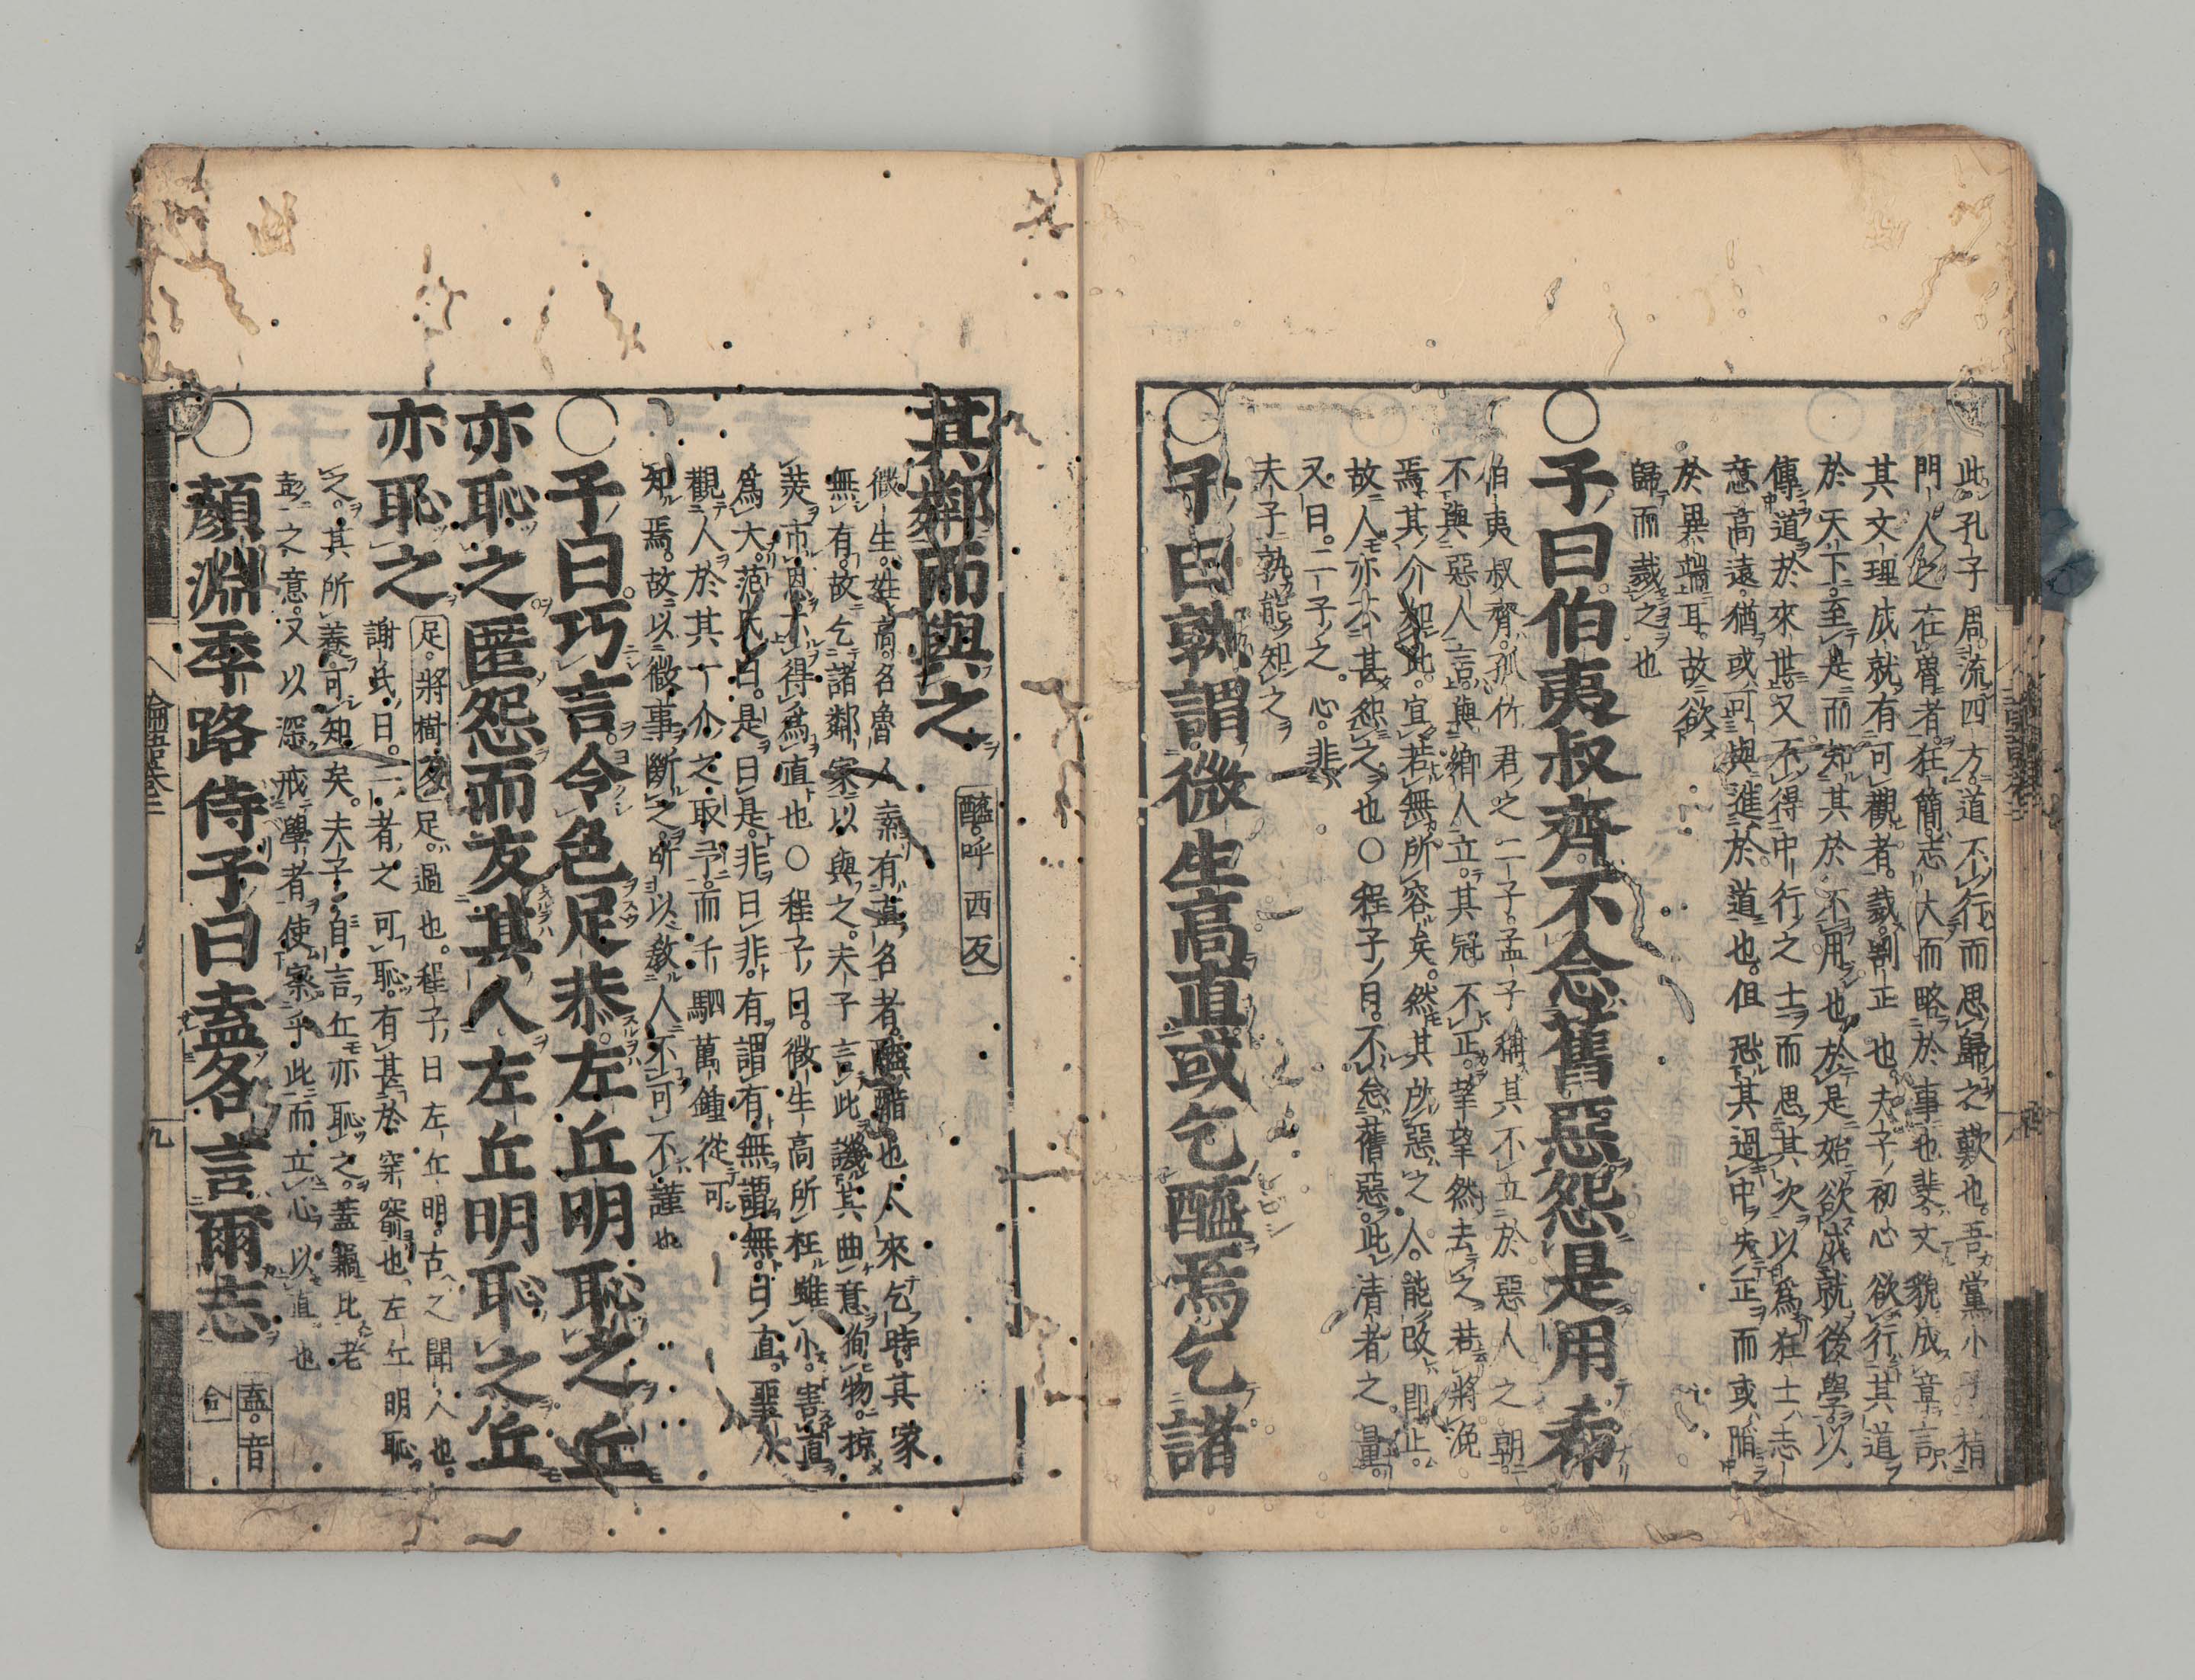 此孔子周流四方道不行而思歸之歎也吾黨小子指
門人之在魯者狂簡志大而略於事也斐文貌成章言
其文理成就有可觀者裁割正也夫子初心欲行其道
於天下至是而知其於不用也於是始欲成就後學以
傳道於來世又不得中行之士而思其次以為狂士志
意高遠猶或可與進於道也但恐其過中失正而或陷
於異端耳故欲
歸而裁之也
○子曰伯夷叔齊不念舊惡怨是用希
伯夷叔齊孤竹君之二子孟子稱其不立於惡人之朝
不與惡人言與鄉人立其冠不正望望然去之若將浼
焉其介如此宜若無所容矣然其所惡之人能改即止
故人亦不甚怨之也○程子曰不念舊惡此清者之量
又曰二子之心非
夫子孰能知之
○子曰孰謂微生高直或乞醯焉乞諸
其鄰而與之 醯呼西反
微生姓高名魯人素有直名者醯醋也人來乞時其家
無有故乞諸鄰家以與之夫子言此譏其曲意狥物掠
美市恩不得為直也○程子曰微生高所枉雖小害直
為大范氏曰是曰是非曰非有謂有無謂無曰直聖人
觀人於其一介之取予而千駟萬鍾從可
知焉故以微事斷之所以教人不可不謹也
○子曰巧言令色足恭左丘明恥之丘
亦恥之匿怨而友其人左丘明恥之丘
亦恥之 足將樹反 足過也程子曰左丘明古之聞人也
謝氏曰二者之可恥有甚於穿窬也左丘明恥
之其所養可知矣夫子自言丘亦恥之蓋竊比老
彭之意又以深戒學者使察乎此而立心以直也
○顏淵季路侍子曰盍各言爾志 盍音
合
論語卷三
九